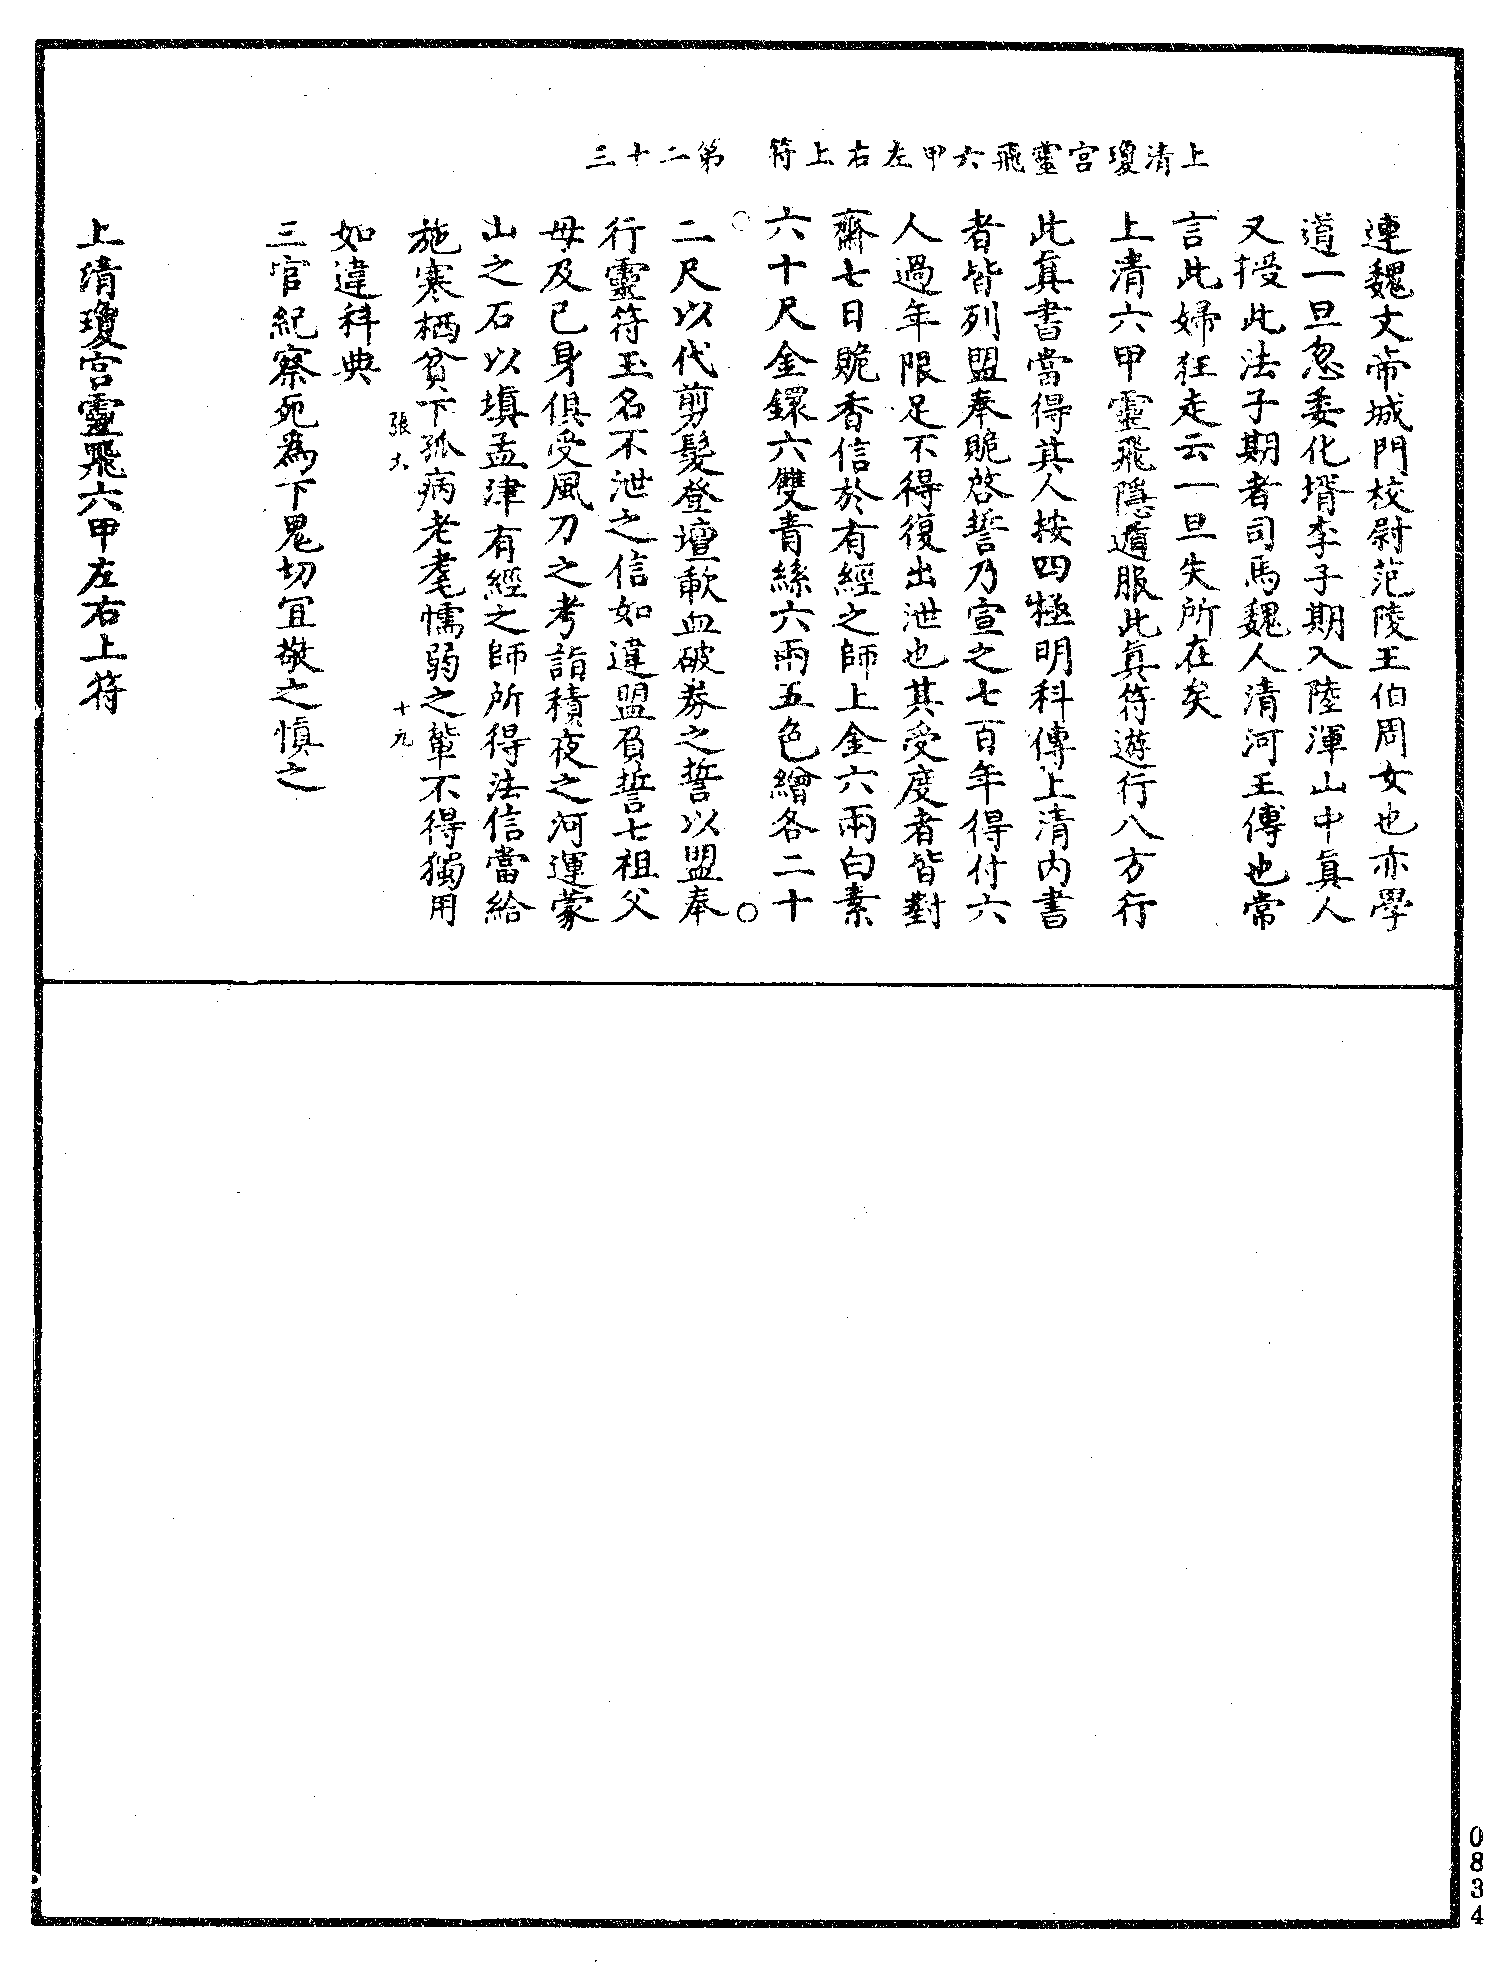 上清瓊宮靈飛六甲左右上符 第二十三
連魏文帝城門校尉范陵王伯周女也亦學
道一旦忽委化壻李子期入陸渾山中真人
又授此法子期者司馬魏人清河王傳也常
言此婦狂走云一旦失所在矣
上清六甲靈飛隱遁服此真符遊行八方行
此真書當得其人按四極明科傳上清內書
者皆列盟奉賝啓誓乃宣之七百年得付六
人過年限足不得復出泄也其受度者皆對
齋七日賝香信於有經之師上金六兩白素
六十尺金鐶六雙青絲六兩五色繒各二十
二尺以代剪髮登壇歃血破券之誓以盟奉
行靈符玉名不泄之信如違盟負誓七祖父
母及已身俱受風刀之考詣積夜之河運蒙
山之石以填孟津有經之師所得法信當給
施寒栖貧下孤病老耄懦弱之輩不得獨用
張六 十九
如違科典
三官紀察死為下鬼切宜敬之慎之
上清瓊宮靈飛六甲左右上符
0834